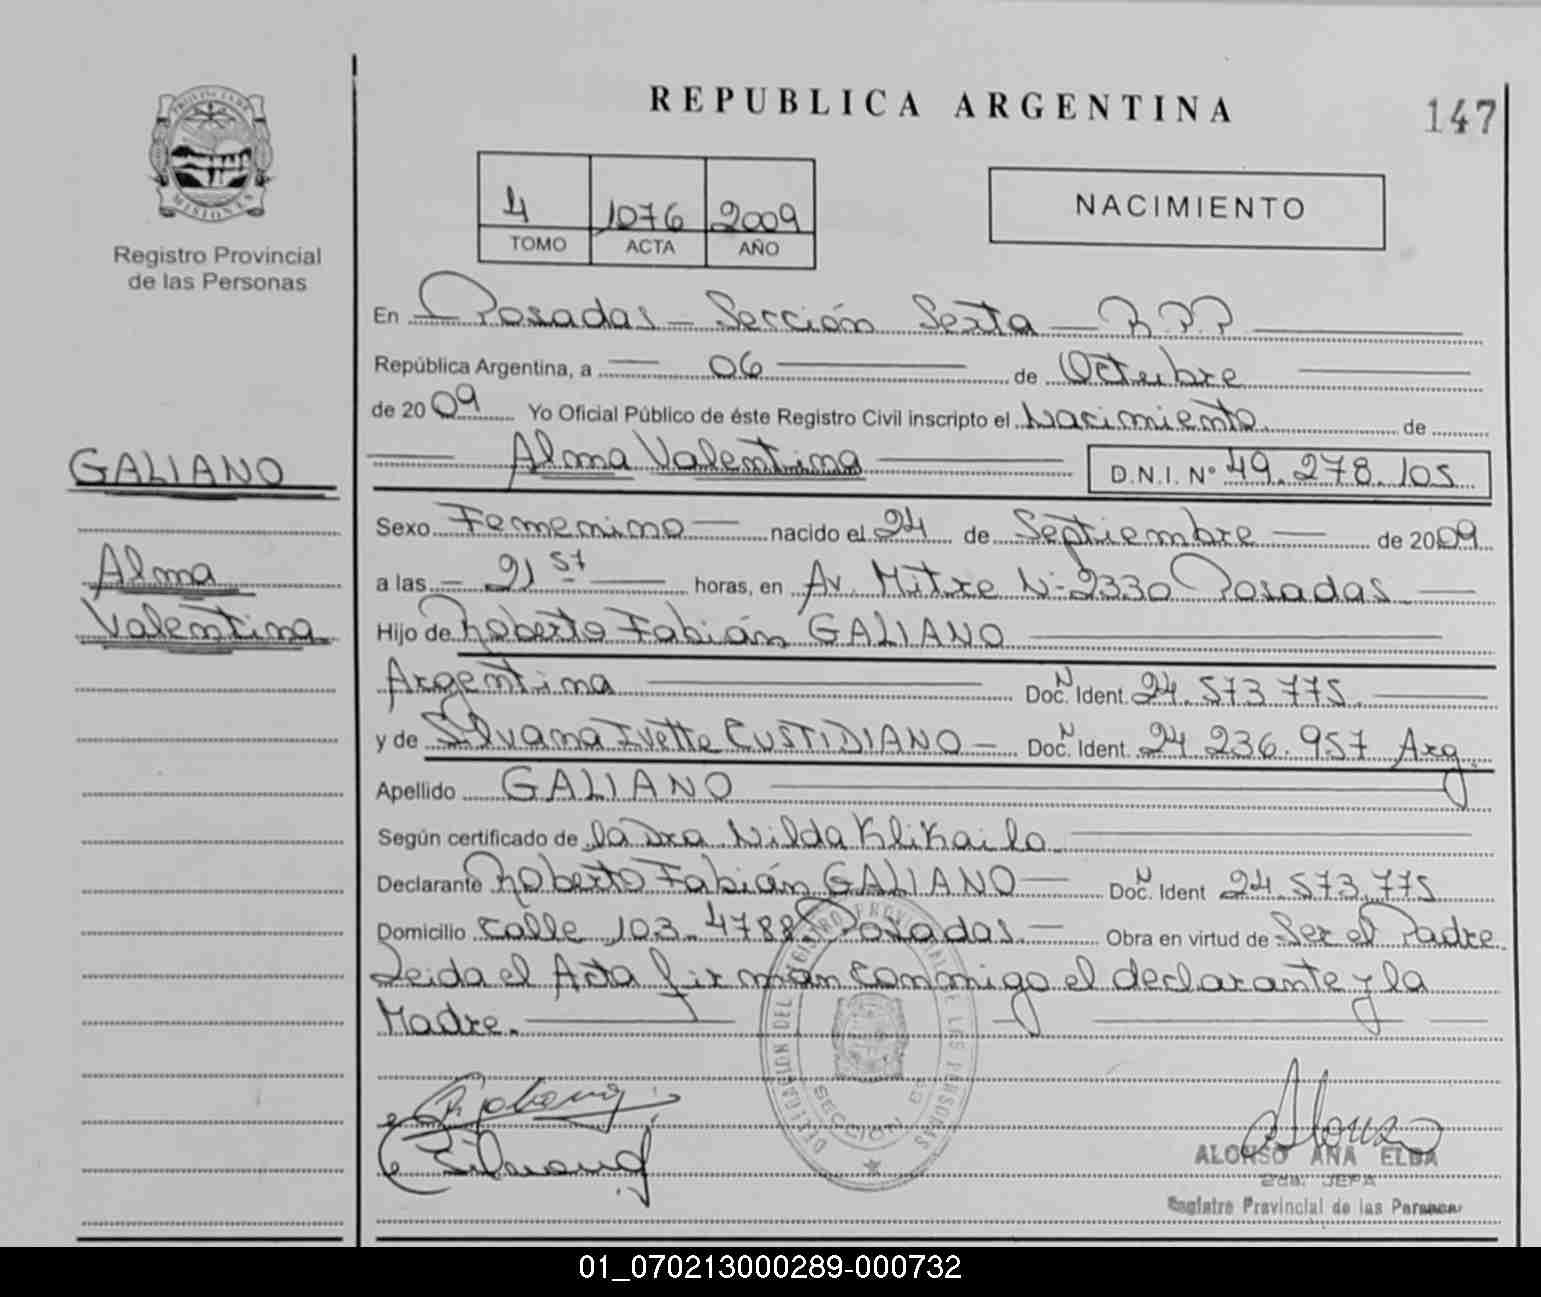 REPUBLICA ARGENTINA
147
PROVINCIA DE
MISIONES
Registro Provincial
de las Personas
4 1076 2009
TOMO ACTA AÑO
NACIMIENTO
En Posadas - Sección Sexta - R.P.P
República Argentina, a 06 de Octubre
de 2009 Yo Oficial Público de éste Registro Civil inscripto el Nacimiento de
Alma Valentina D.N.I. Nº 49.278.105
GALIANO
Alma
Valentina
Sexo Femenino nacido el 24 de Septiembre de 2009
a las 21 57 horas, en Av. Mitre N-2330 Posadas
Hijo de Roberto Fabián GALIANO
Argentina Doc. N Ident. 24.573.775
y de Silvana Ivette CUSTIDIANO - Doc. N Ident. 24.236.957 Arg.
Apellido GALIANO
Según certificado de la Dra Nilda Klikailo
Declarante Roberto Fabián GALIANO Doc. N Ident 24.573.775
Domicilio Calle 103-4788 Posadas Obra en virtud de Ser el Padre
Leida el Acta firman conmigo el declarante y la
Madre.
DELEGACION DEL REGISTRO PROVINCIAL DE LAS PERSONAS
SECCION
ALONSO ANA ELBA
JEFA
Registro Provincial de las Personas
01_070213000289-000732